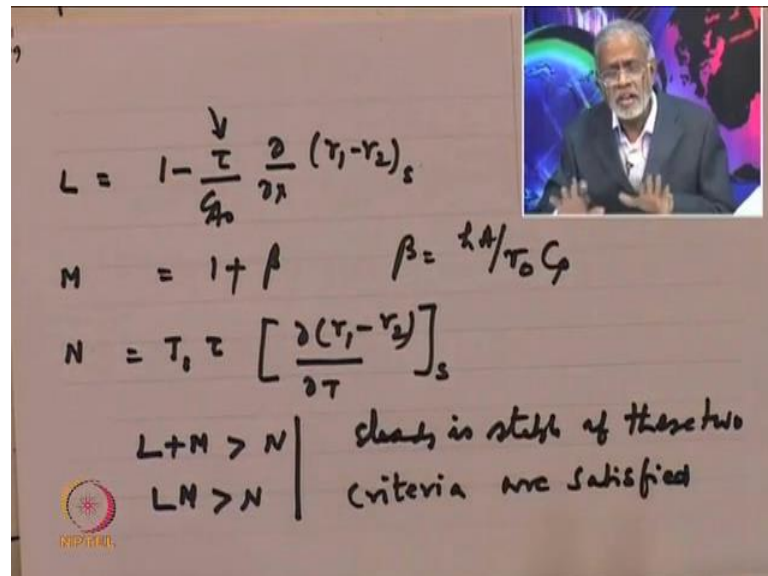 L = 1 - τ/C_A0 ∂/∂x (r₁-r₂)ₛ
M = 1 + β β = hA/v₀ Cₚ
N = T₀ τ [∂(r₁-r₂)/∂T]ₛ
L+M > N | steady is stable if these two
LM > N | criteria are satisfied
NPTEL